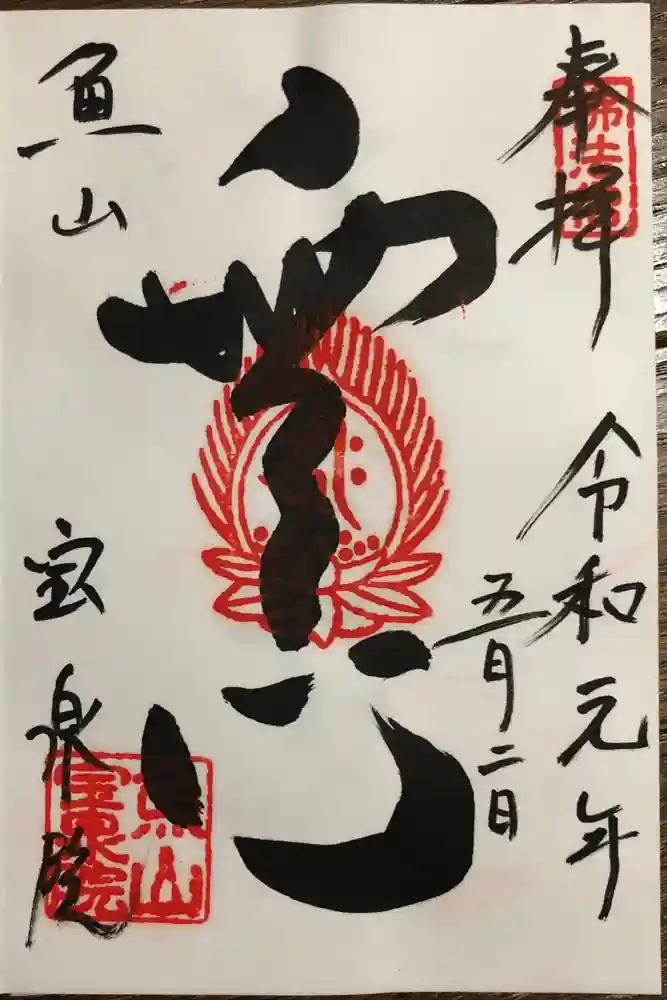 奉拝
令和元年
五月二日
心
魚山
宝泉院
魚山
宝泉院